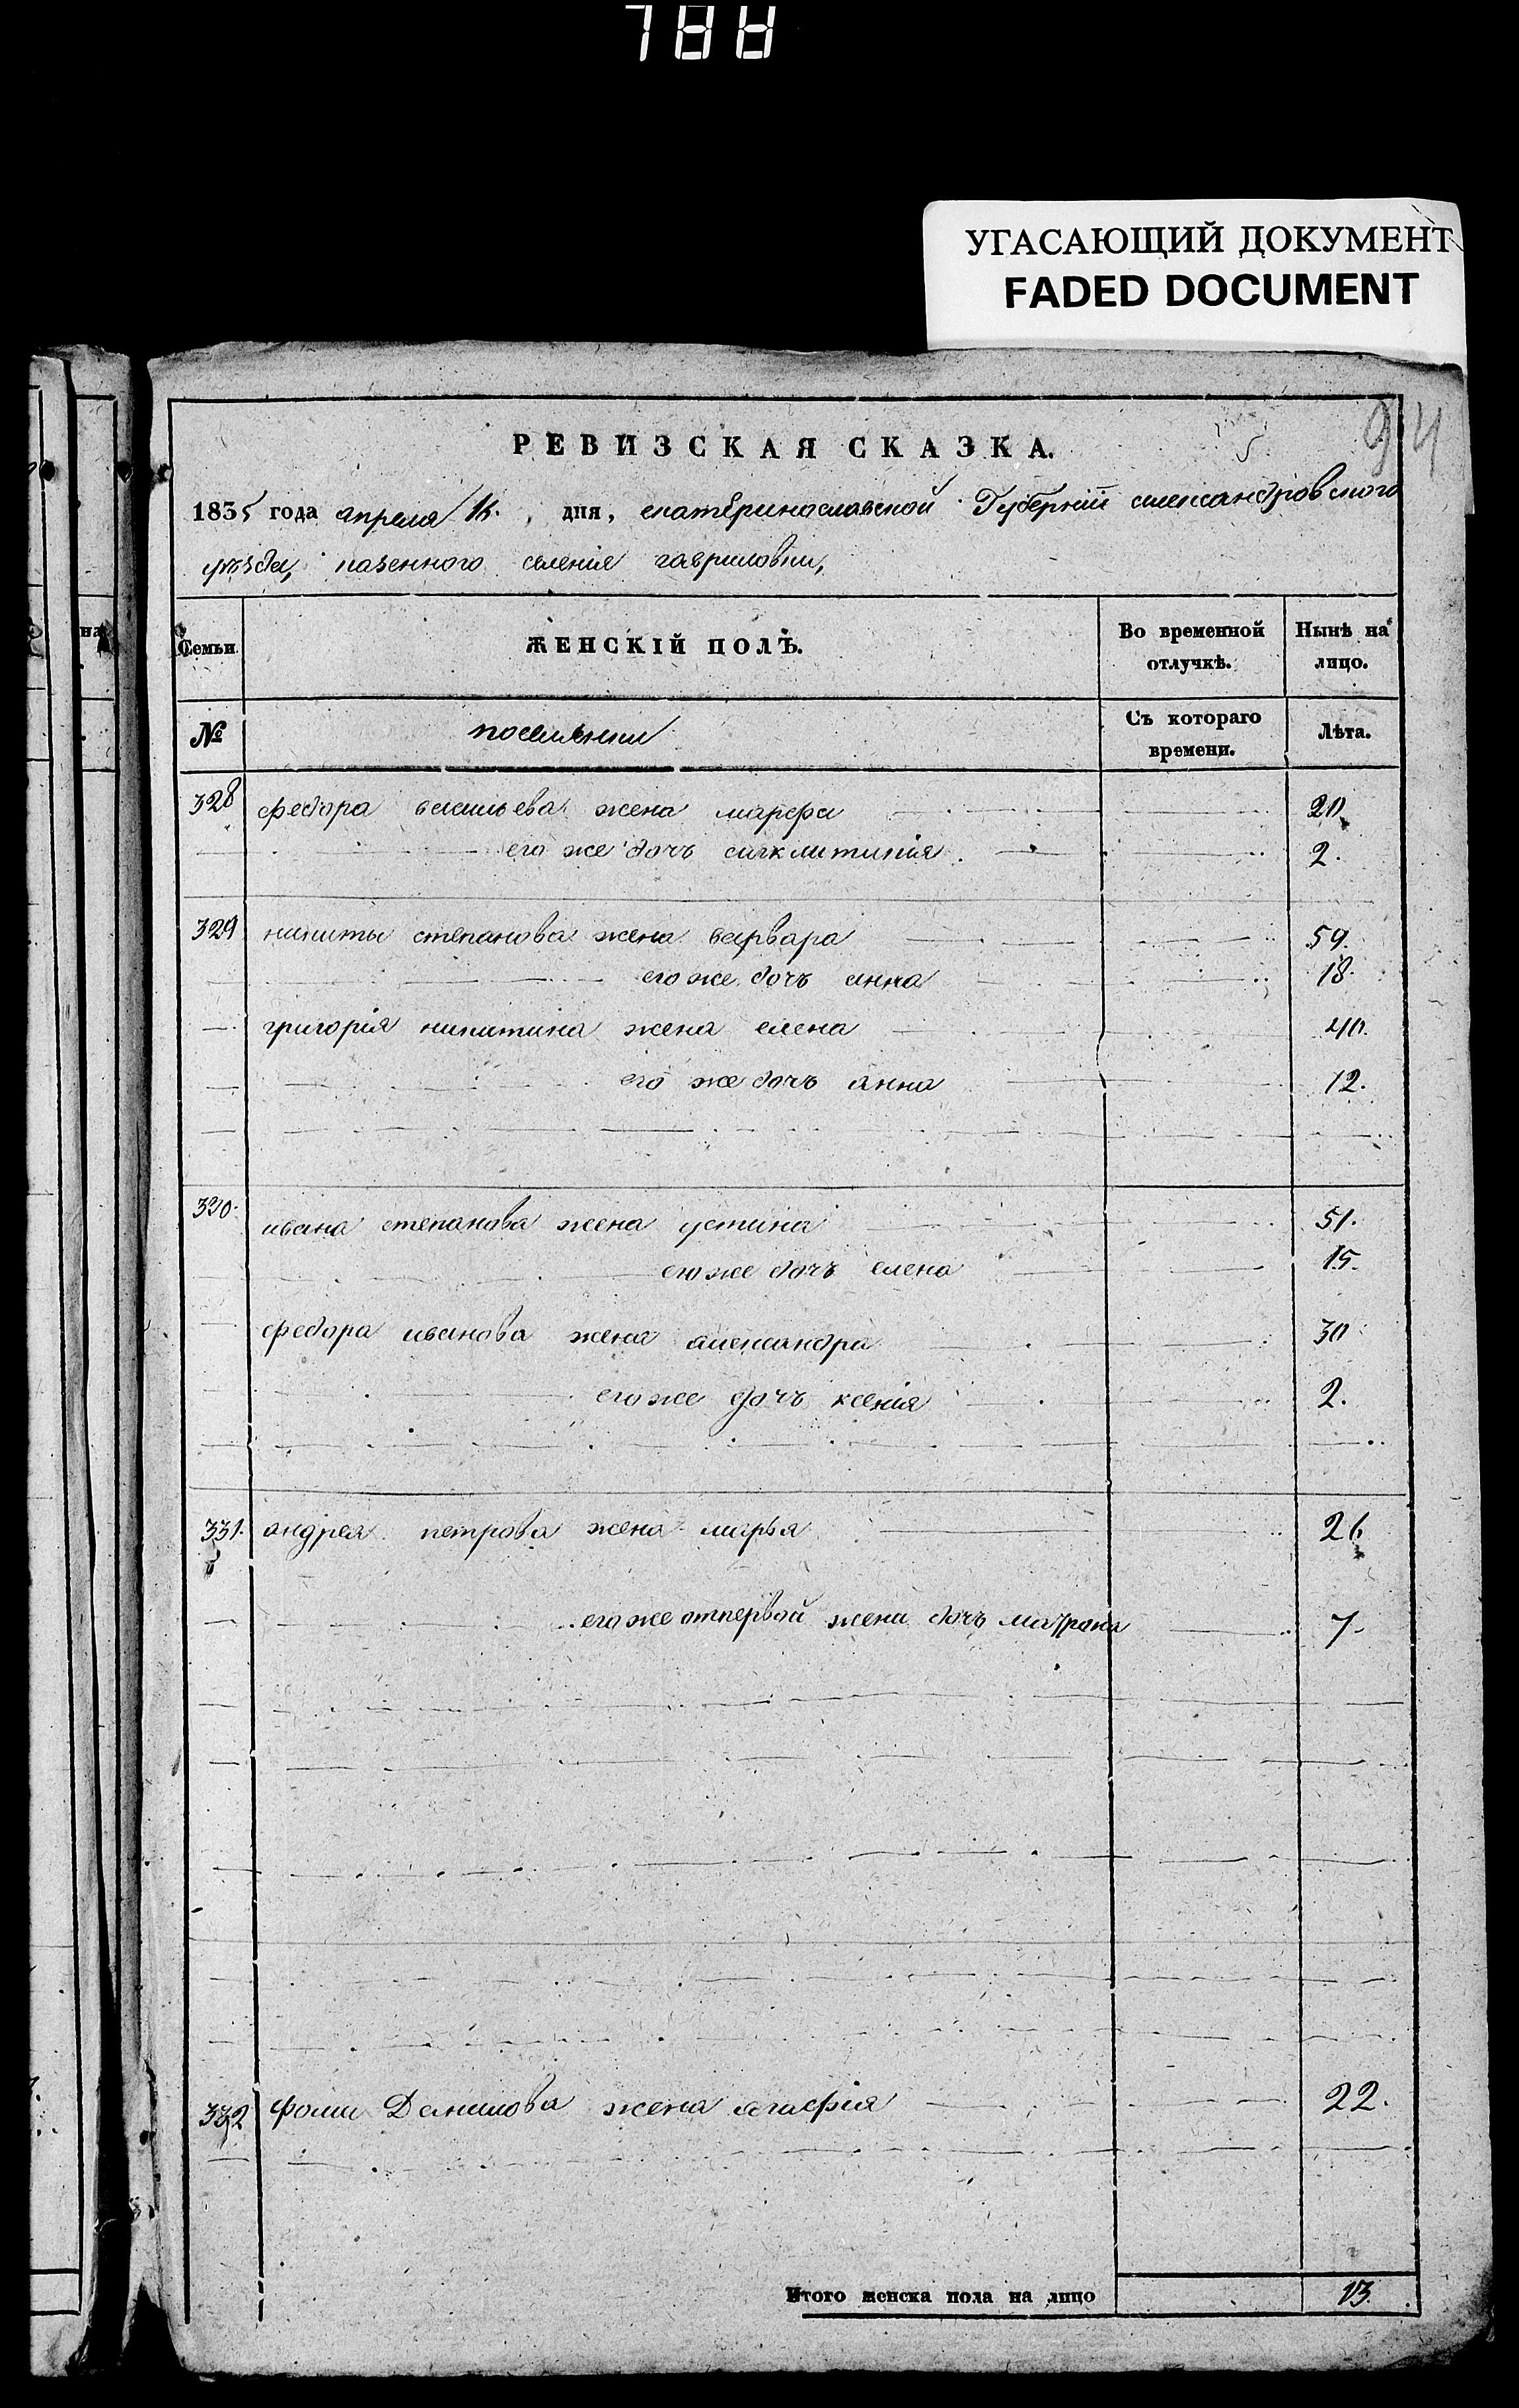 788
УГАСАЮЩИЙ ДОКУМЕНТ
FADED DOCUMENT
94
РЕВИЗСКАЯ СКАЗКА.
1835 года апреля дня, екатеринославской Губерніи александровского
уѣзда, казенного селенія гавриловки,
Семьи
ЖЕНСКІЙ ПОЛЪ.
Во временной отлучкѣ.
Нынѣ на лицо.
№
поселянки
Съ котораго времени.
Лѣта.
328 федора васильева жена марфа 20
его же дочъ сигклитикія 2.
329 никиты степанова жена варвара 59.
его же дочъ анна 18.
григорія никитина жена елена 40.
его же дочъ анна 12.
330. ивана степанова жена устина 51.
его же дочъ елена 15.
федора иванова жена александра 30
его же дочъ ксенія 2.
331. андрея петрова жена марья 26
его же отпервой жени дочъ матрона 7
332 фоми Данилова жена агафія 22.
Итого женска пола на лицо 13.